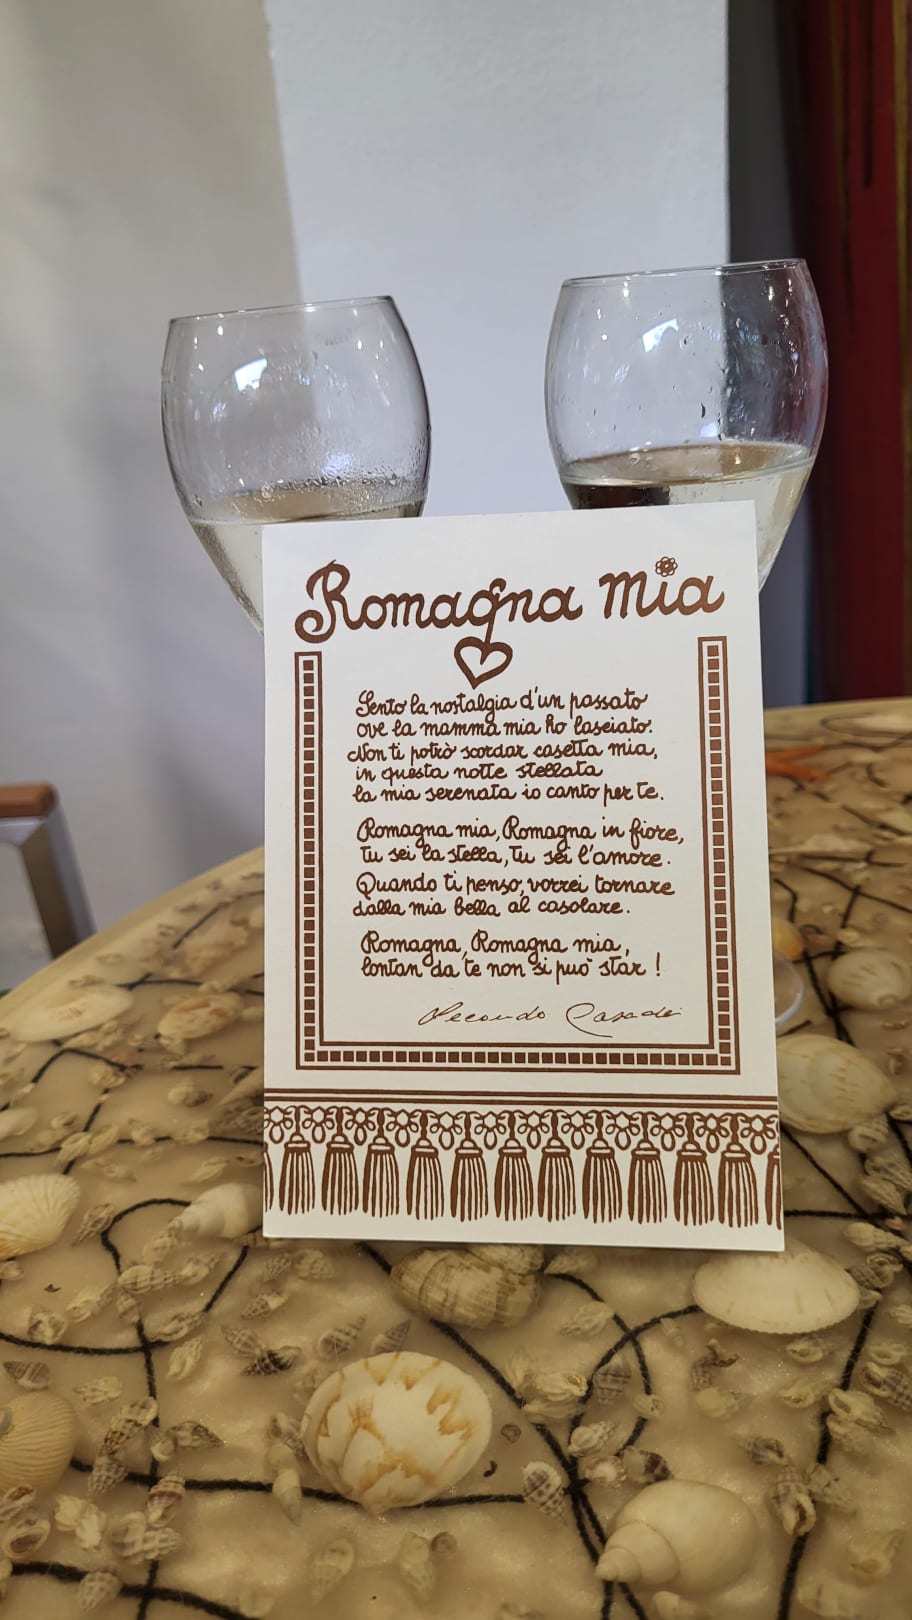 Romagna mia
Sento la nostalgia d'un passato
ove la mamma mia ho lasciato.
Non ti potrò scordar casetta mia,
in questa notte stellata
la mia serenata io canto per te.
Romagna mia, Romagna in fiore,
tu sei la stella, tu sei l'amore.
Quando ti penso, vorrei tornare
dalla mia bella al casolare.
Romagna, Romagna mia,
lontan da te non si può star!
Secondo Casadei